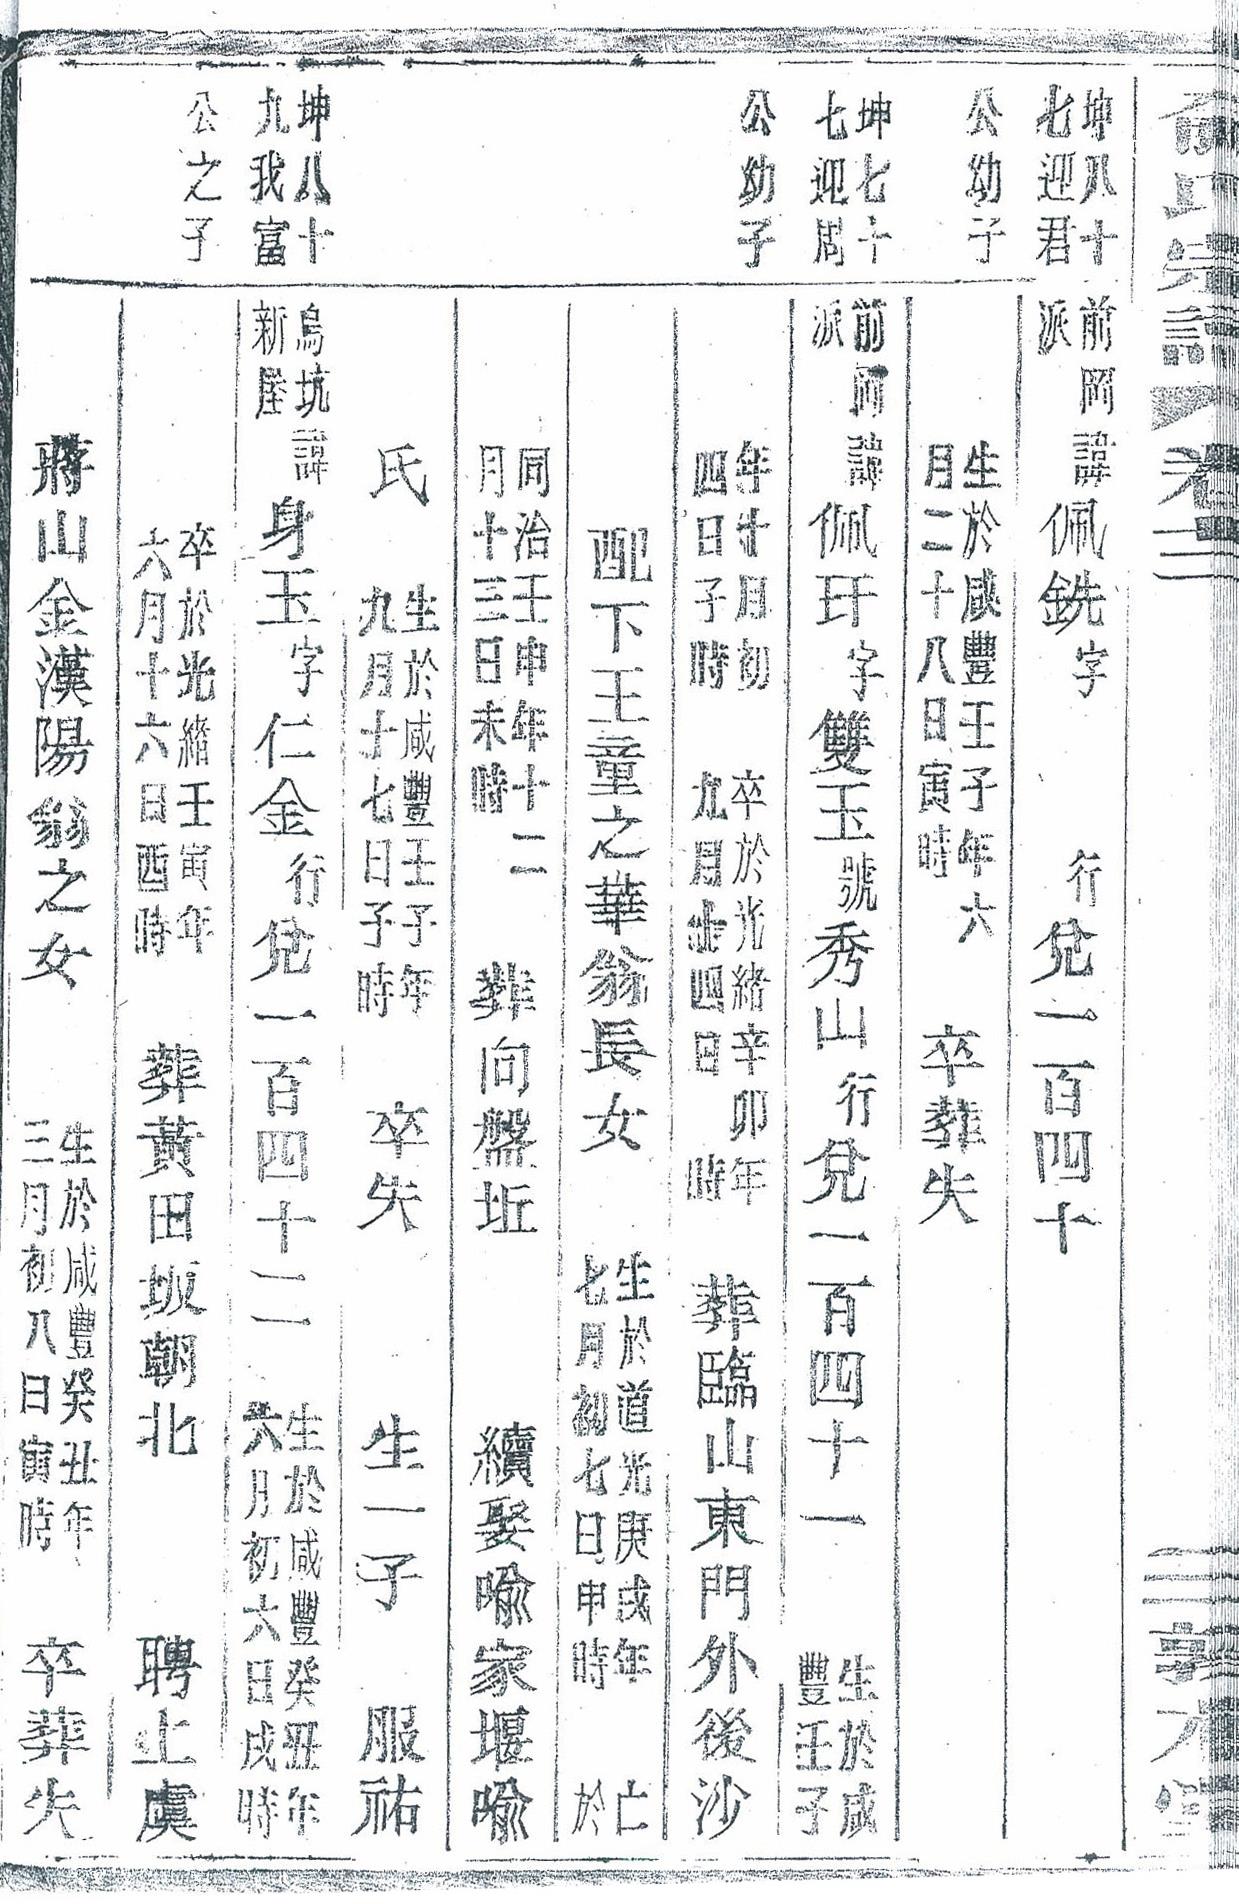 俞氏宗譜 卷三
坤八十七迎君公幼子
前岡派 諱佩銑字 行兌一百四十
生於咸豐壬子年六月二十八日寅時 卒葬失
坤七十七迎周公幼子
前岡派 諱佩玕字雙玉號秀山行兌一百四十一 生於咸豐壬子
年十月初四日子時 卒於光緒辛卯年九月十四日 時 葬臨山東門外後沙
配下王童之華翁長女 生於道光庚戌年七月初七日申時 亡於
同治壬申年十二月十三日未時 葬向盤坵 續娶喻家堰喻
氏 生於咸豐壬子年九月十七日子時 卒失 生一子 服祐
坤八十九我富公之子
烏坑新陞 諱身玉字仁金行兌一百四十二 生於咸豐癸丑年六月初六日戌時
卒於光緒壬寅年六月十六日酉時 葬黃田坂朝北 聘上虞
蔣山金漢陽翁之女 生於咸豐癸丑年三月初八日寅時 卒葬失
三 敦本堂